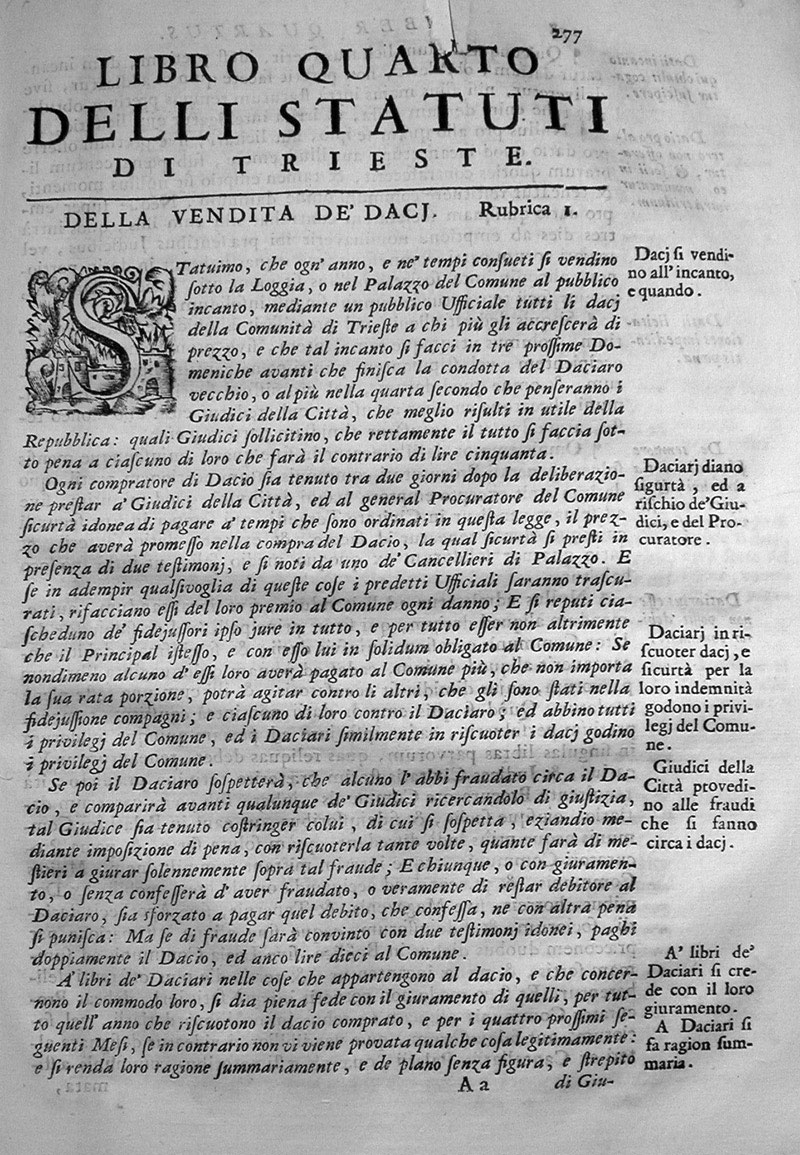 277
LIBRO QUARTO
DELLI STATUTI
DI TRIESTE.
DELLA VENDITA DE' DACJ. Rubrica 1.
STatuimo, che ogn' anno, e ne' tempi conſueti ſi vendino
ſotto la Loggia, o nel Palazzo del Comune al pubblico
incanto, mediante un pubblico Uffiziale tutti li dacj
della Comunità di Trieſte a chi più gli accreſcerà di
prezzo, e che tal incanto ſi facci in tre proſſime Do-
meniche avanti che finiſca la condotta del Daciaro
vecchio, o al più nella quarta ſecondo che penſeranno i
Giudici della Città, che meglio riſulti in utile della
Repubblica: quali Giudici ſollicitino, che rettamente il tutto ſi faccia ſot-
to pena a ciaſcuno di loro che farà il contrario di lire cinquanta.
Ogni compratore di Dacio ſia tenuto tra due giorni dopo la deliberazio-
ne preſtar a' Giudici della Città, ed al general Procuratore del Comune
ſicurtà idonea di pagare a' tempi che ſono ordinati in queſta legge, il prez-
zo che averà promeſſo nella compra del Dacio, la qual ſicurtà ſi preſti in
preſenza di due teſtimonj, e ſi noti da uno de' Cancellieri di Palazzo. E
ſe in adempir qualſivoglia di queſte coſe i predetti Ufficiali ſaranno traſcu-
rati, rifacciano eſſi del loro premio al Comune ogni danno; E ſi reputi cia-
ſcheduno de' fidejuſſori ipſo jure in tutto, e per tutto eſſer non altrimente
che il Principal iſteſſo, e con eſſo lui in ſolidum obligato al Comune: Se
nondimeno alcuno d' eſſi loro averà pagato al Comune più, che non importa
la ſua rata porzione, potrà agitar contro li altri, che gli ſono ſtati nella
fidejuſſione compagni; e ciaſcuno di loro contro il Daciaro; ed abbino tutti
i privilegj del Comune, ed i Daciari ſimilmente in riſcuoter i dacj godino
i privilegj del Comune.
Se poi il Daciaro ſoſpetterà, che alcuno l' abbi fraudato circa il Da-
cio, e comparirà avanti qualunque de' Giudici ricercandolo di giuſtizia,
tal Giudice ſia tenuto coſtringer colui, di cui ſi ſoſpetta, eziandio me-
diante impoſizione di pena, con riſcuoterla tante volte, quante farà di me-
ſtieri a giurar ſolennemente ſopra tal fraude; E chiunque, o con giuramen-
to, o ſenza confeſſerà d' aver fraudato, o veramente di reſtar debitore al
Daciaro, ſia sforzato a pagar quel debito, che confeſſa, ne con altra pena
ſi puniſca: Ma ſe di fraude ſarà convinto con due teſtimonj idonei, paghi
doppiamente il Dacio, ed anco lire dieci al Comune.
A' libri de' Daciari nelle coſe che appartengono al dacio, e che concer-
nono il commodo loro, ſi dia piena fede con il giuramento di quelli, per tut-
to quell' anno che riſcuotono il dacio comprato, e per i quattro proſſimi ſe-
guenti Meſi, ſe in contrario non vi viene provata qualche coſa legitimamente:
e ſi renda loro ragione ſummariamente, e de plano ſenza figura, e ſtrepito
A a di Giu-
Dacj ſi vendi-
no all' incanto,
e quando.
Daciarj diano
ſigurtà, ed a
riſchio de' Giu-
dici, e del Pro-
curatore.
Daciarj in ri-
ſcuoter dacj, e
ſicurtà per la
loro indemnità
godono i privi-
legj del Comu-
ne.
Giudici della
Città provedi-
no alle fraudi
che ſi fanno
circa i dacj.
A' libri de'
Daciari ſi cre-
de con il loro
giuramento.
A Daciari ſi
fa ragion ſum-
maria.